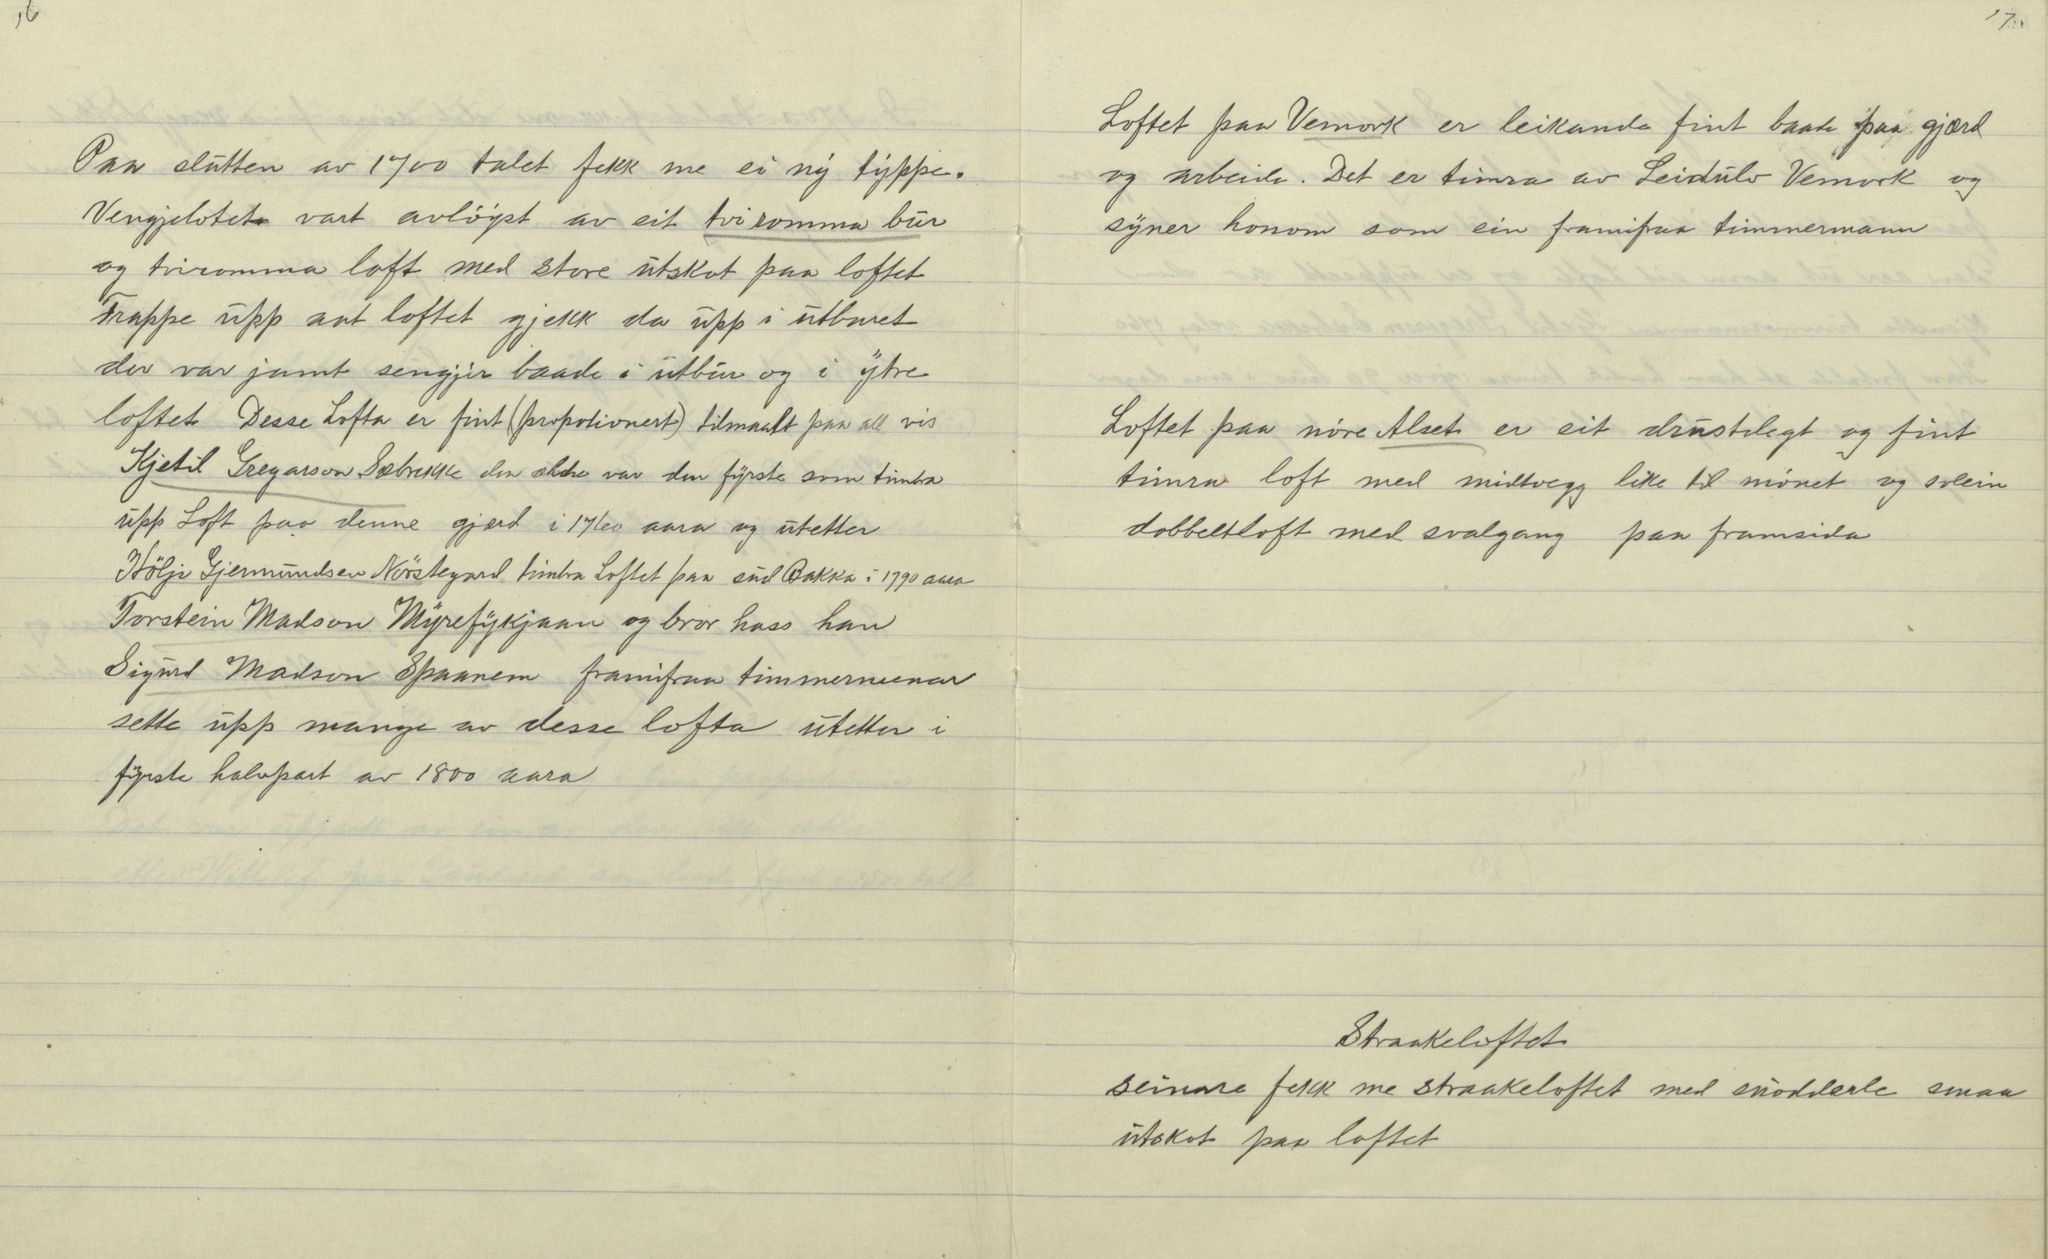 16
Paa slutten av 1700 talet fekk me ei ny typpe.
Vengjelotet vart avlöyst av eit tviromma bur
og tviromma loft med store utskot paa loftet
Trappe upp aat loftet gjekk da upp i utburet
der var jamt sengjir baade i utbur og i ytre
loftet Desse Lofta er fint (propotionert) tilmaalt paa all vis
Kjetil Gregarson Sæbrekke den eldre var den fyrste som timbra
upp Loft paa denne gjærd i 1760 aara og utetter
Hölje Gjermundsen Nörstegard timbra Loftet paa sud Bakka i 1790 aara
Torstein Madson Myrefykjaan og bror hass han
Sigurd Madson Spaanem framifraa timmermenar
sette upp mange av desse lofta utetter i
fyrste halvpart av 1800 aara
17.
Loftet paa Vemork er leikande fint baade paa gjærd
og arbeide. Det er timra av Leidulv Vemork og
syner honom som ein framifraa timmermann
Loftet paa nöre Alset er eit drustelegt og fint
timra loft med midtvegg like til mönet og solein
dobbeltloft med svalgang paa framsida
Straakeloftet
seinare fekk me straakeloftet med smaa
utskot paa loftet